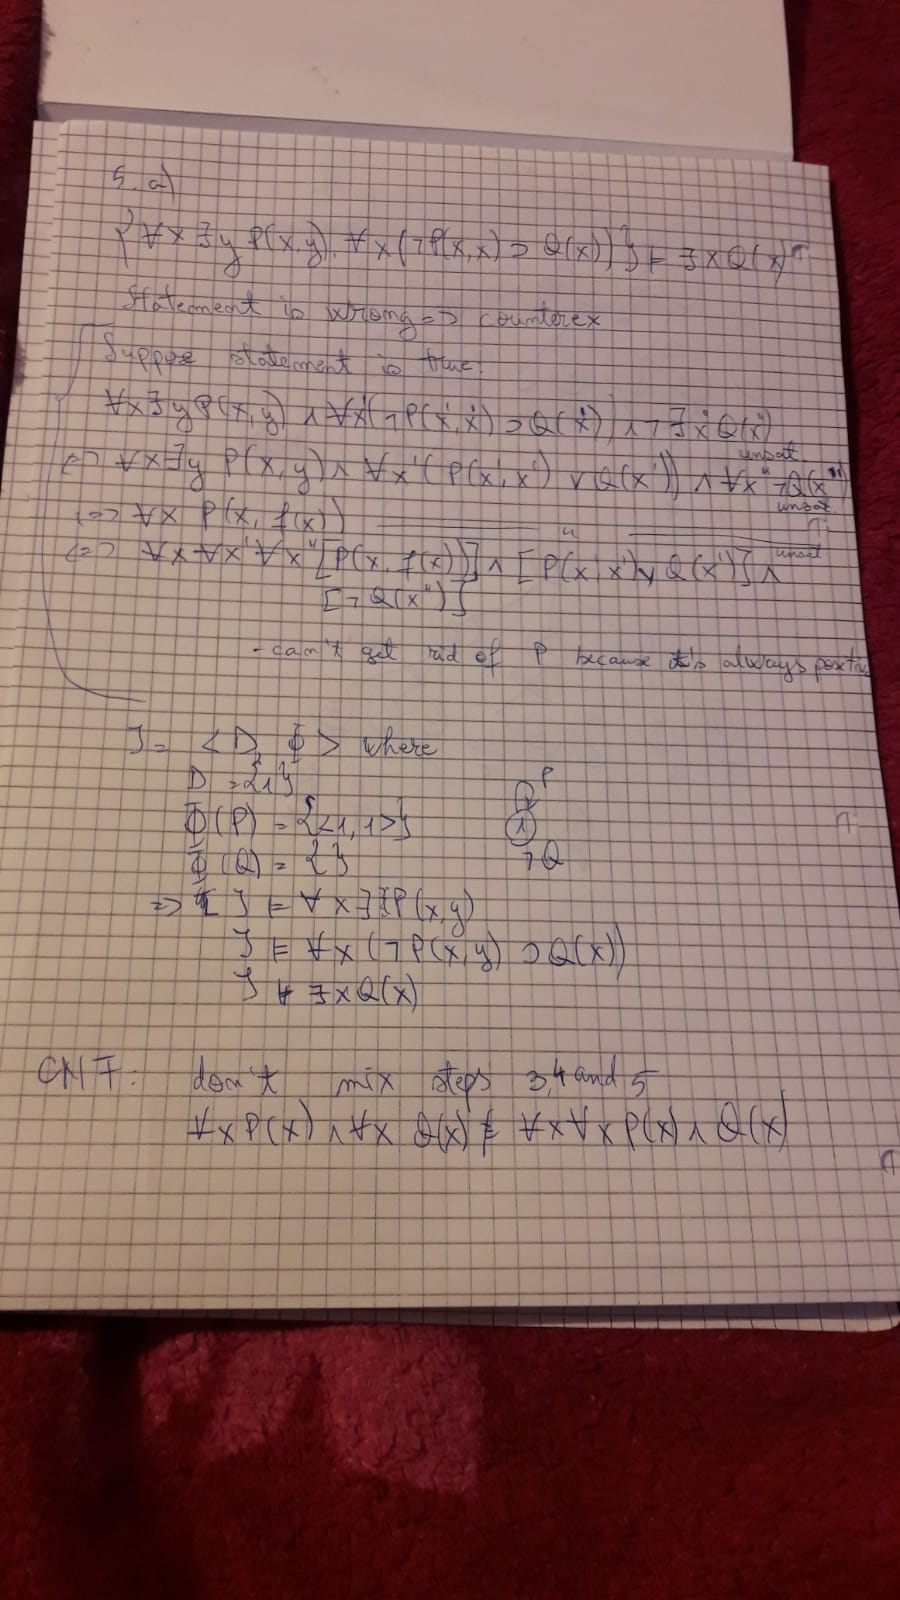 5. a)
{∀x∃y P(x,y), ∀x(¬P(x,x) ⊃ Q(x))} ⊨ ∃xQ(x)
Statement is wrong => counterex
Suppose statement is true:
∀x∃yP(x,y) ∧ ∀x'(¬P(x',x') ⊃ Q(x')) ∧ ¬∃x''Q(x'') unsat
<=> ∀x∃y P(x,y) ∧ ∀x'(P(x',x') ∨ Q(x')) ∧ ∀x''¬Q(x'') unsat
<=> ∀x P(x, f(x)) — " —
<=> ∀x∀x'∀x''[P(x, f(x))] ∧ [P(x',x') ∨ Q(x')] ∧ unsat
[¬Q(x'')]
- can't get rid of P because it's always
I = <D, Φ> where
D = {1}
Φ(P) = {<1,1>}
Φ(Q) = {}
P
1
¬Q
=> I ⊨ ∀x∃yP(x,y)
I ⊨ ∀x(¬P(x,y) ⊃ Q(x))
I ⊭ ∃xQ(x)
CNF: don't mix steps 3,4 and 5
∀xP(x) ∧ ∀x Q(x) ≢ ∀x∀xP(x) ∧ Q(x)